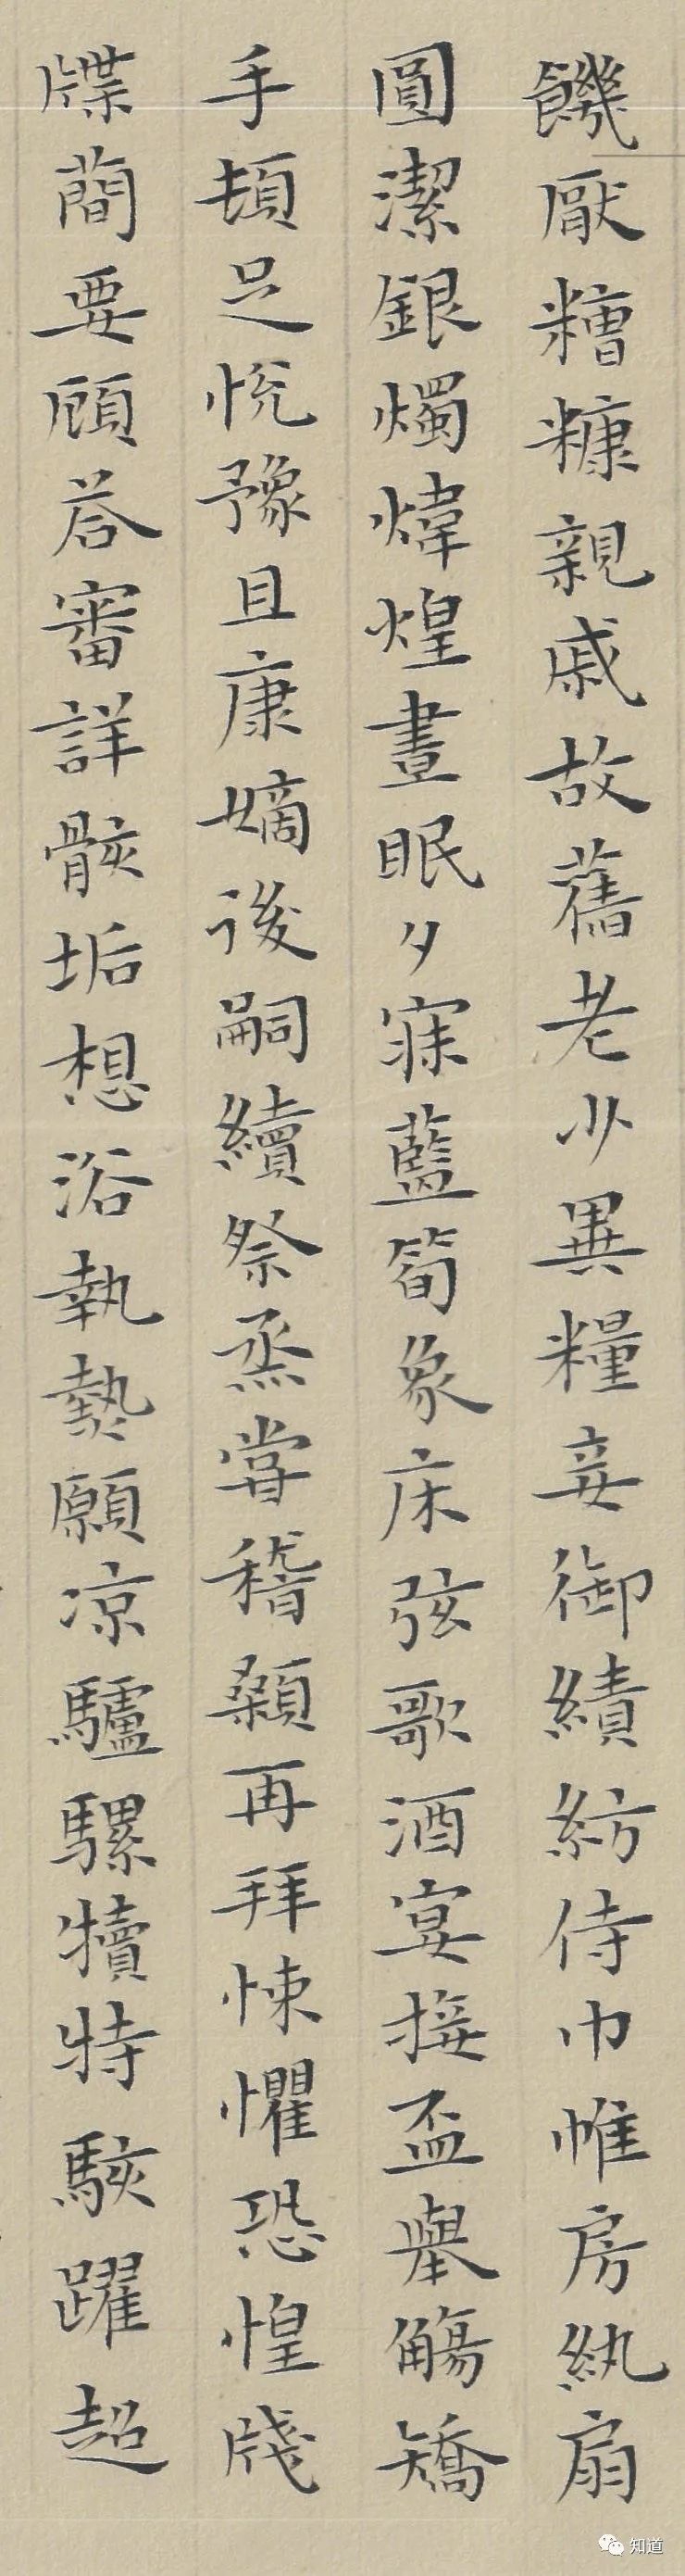 饑厭糟糠親戚故舊老少異糧妾御績紡侍巾帷房紈扇
圓潔銀燭煒煌晝眠夕寐藍筍象床弦歌酒宴接盃舉觴矯
手頓足悅豫且康嫡後嗣續祭烝嘗稽顙再拜悚懼恐惶牋
牒蕳要顧荅審詳骸垢想浴執熱願凉驢騾犢特駭躍超
知道